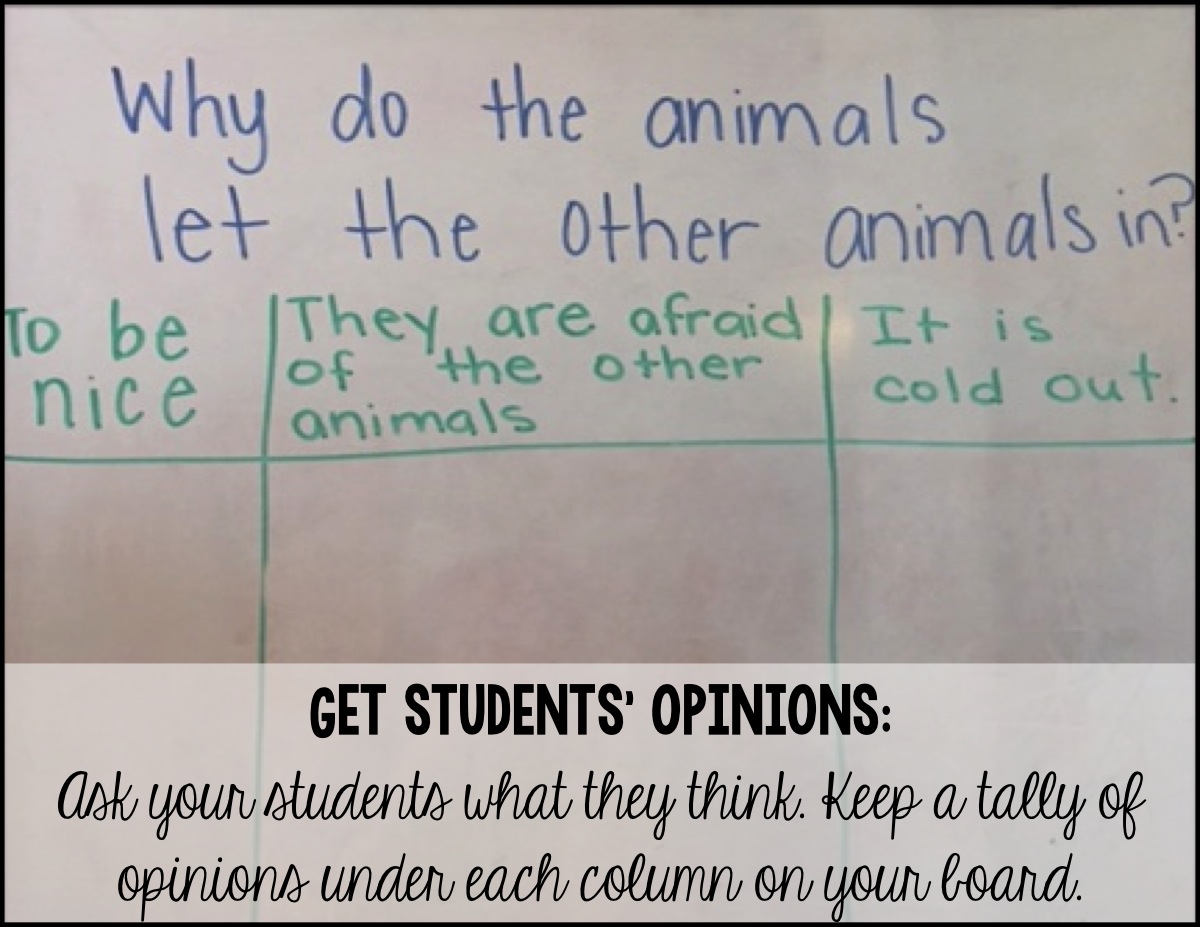 Why do the animals
let the other animals in?
To be
nice
They are afraid
of the other
animals
It is
cold out.
GET STUDENTS' OPINIONS:
Ask your students what they think. Keep a tally of
opinions under each column on your board.